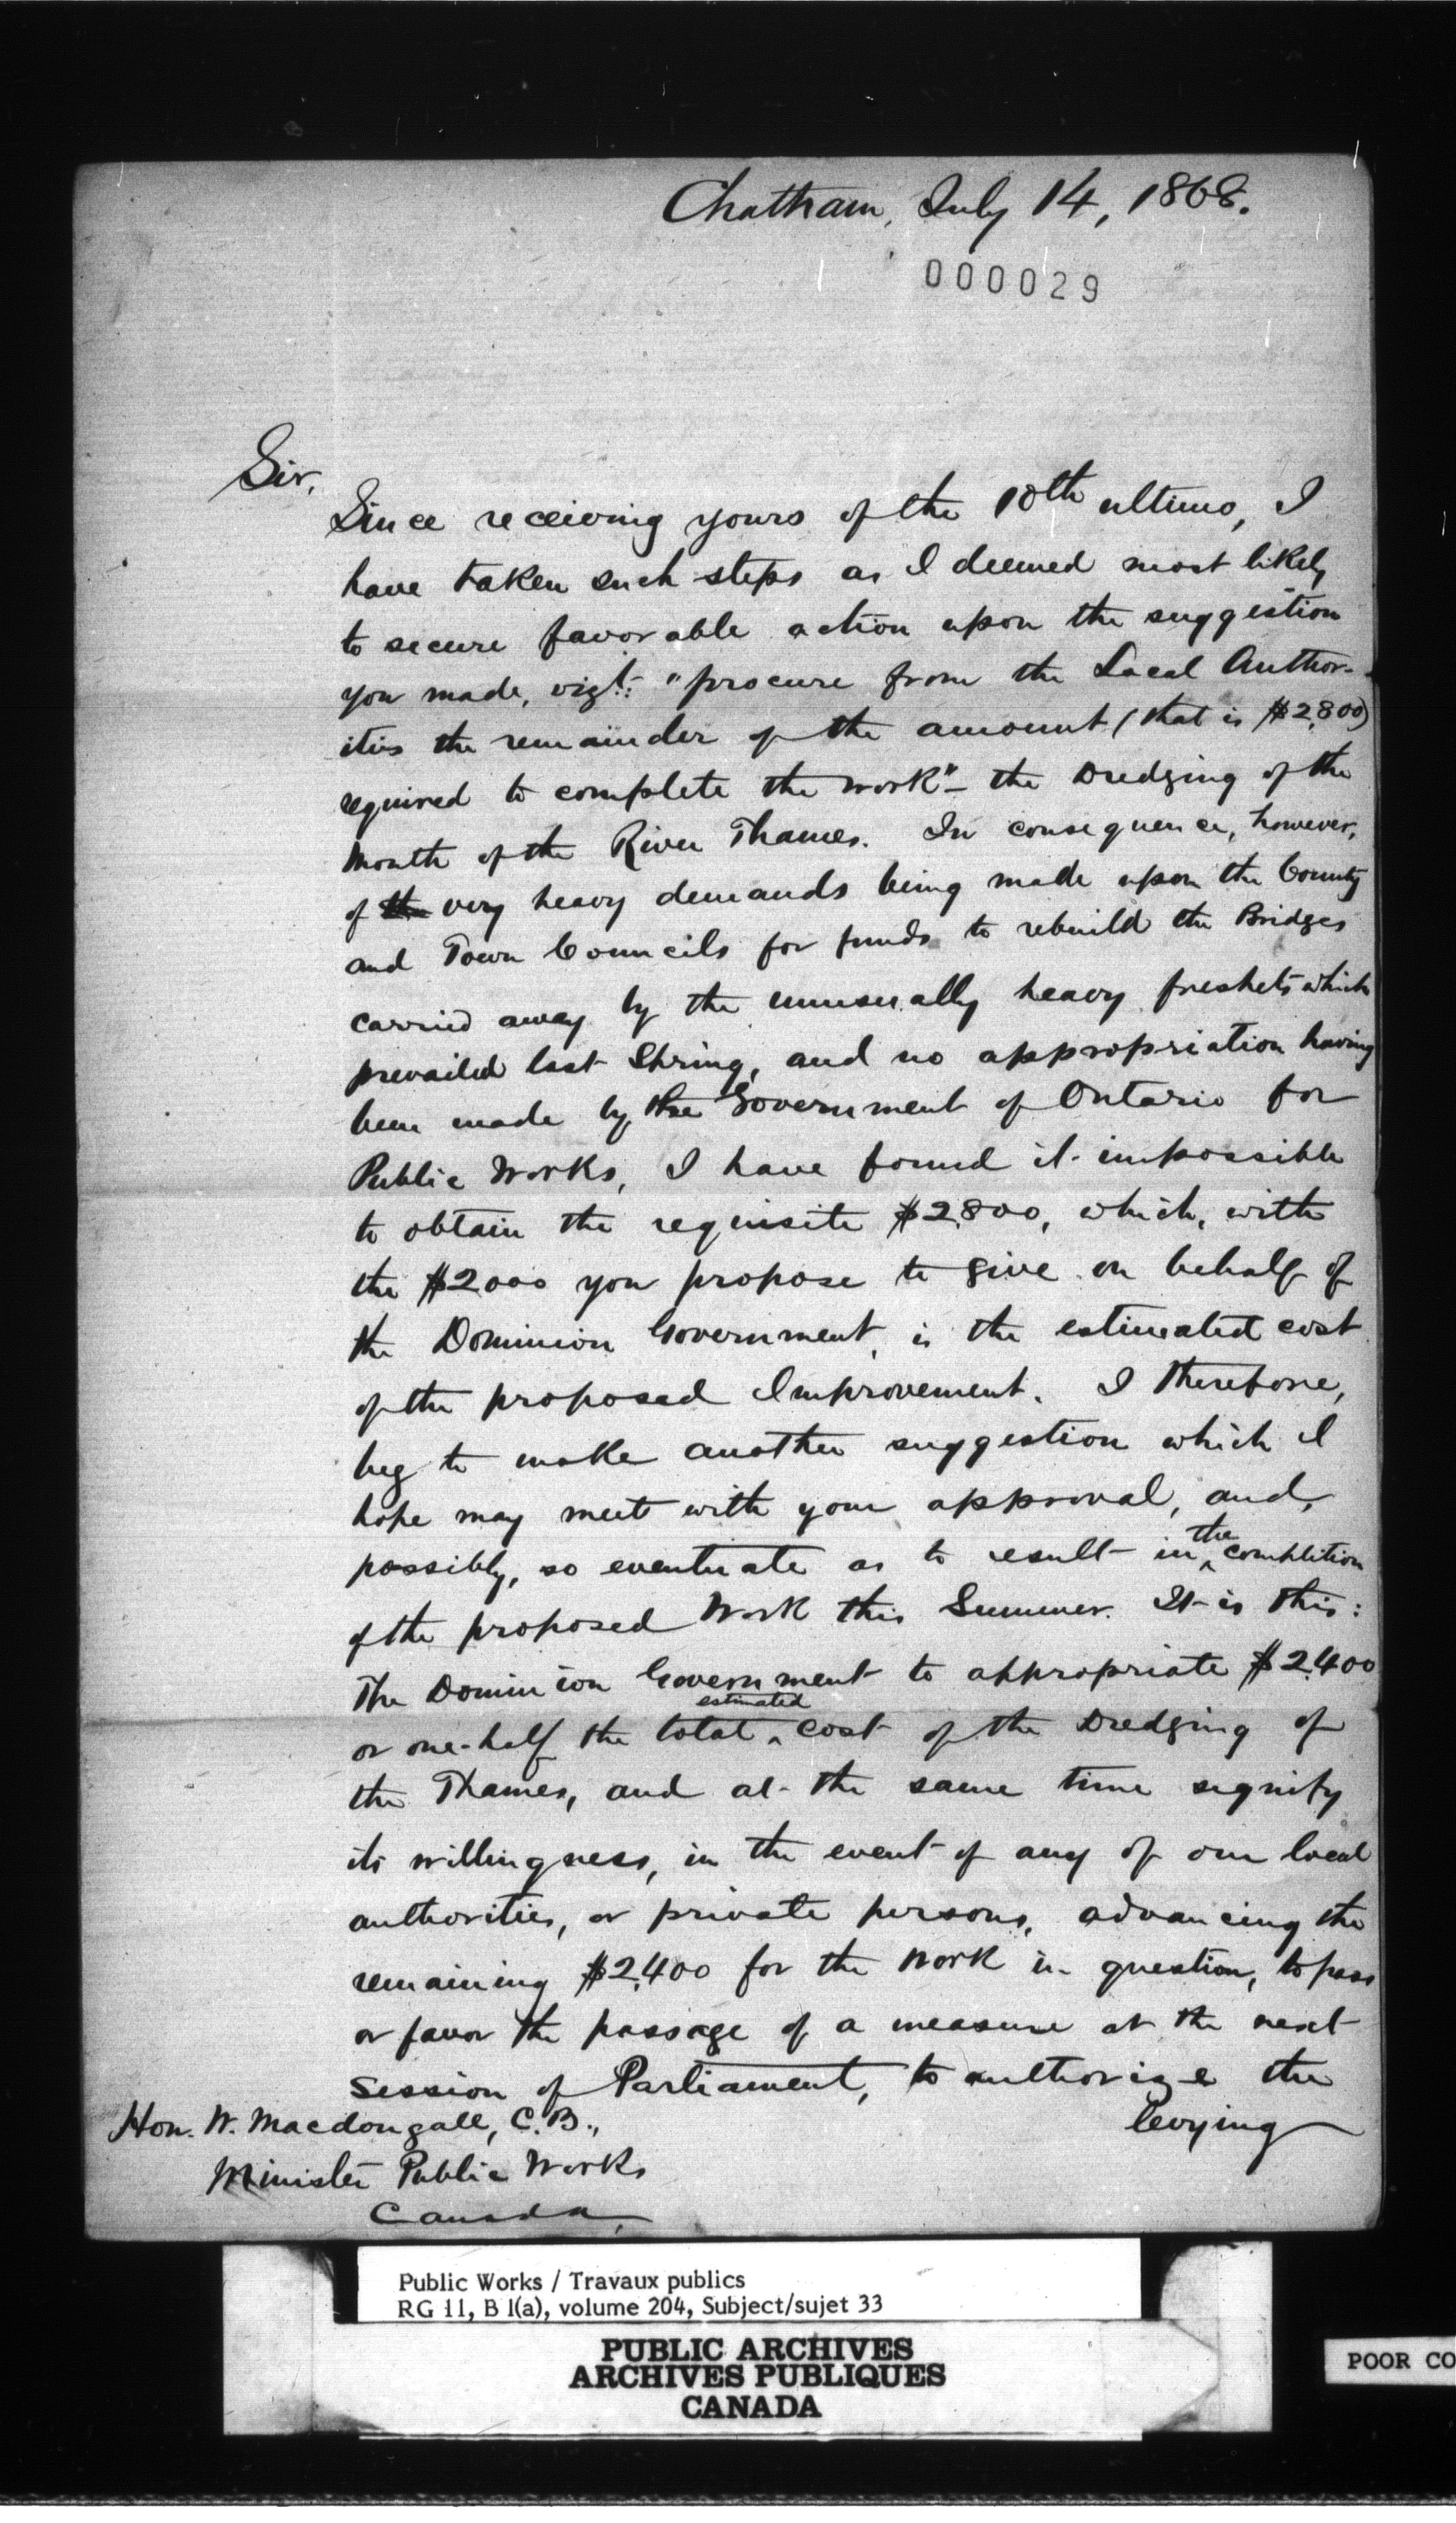 Chatham, July 14, 1868.
000029
Sir,
Since receiving yours of the 10th ultimo, I
have taken such steps as I deemed most likely
to secure favorable action upon the suggestion
you made, vizt: "procure from the Local Author-
ities the remainder of the amount (that is $2,800)
required to complete the work" – the Dredging of the
Mouth of the River Thames. In consequence, however,
of the very heavy demands being made upon the County
and Town Councils for funds to rebuild the Bridges
carried away by the unusually heavy freshets which
prevailed last Spring, and no appropriation having
been made by the Government of Ontario for
Public Works, I have found it impossible
to obtain the requisite $2,800, which, with
the $2000 you propose to give on behalf of
the Dominion Government, is the estimated cost
of the proposed Improvement. I therefore,
beg to make another suggestion which I
hope may meet with your approval, and,
possibly, so eventuate as to result in the completion
of the proposed Work this Summer. It is this:
The Dominion Government to appropriate $2,400
or one-half the total estimated cost of the Dredging of
the Thames, and at the same time signify
its willingness, in the event of any of our local
authorities, or private persons, advancing the
remaining $2,400 for the Work in question, to pass
or favor the passage of a measure at the next
Session of Parliament, to authorize the
levying
Hon. W. Macdougall, C.B.,
Minister Public Works
Canada,
Public Works / Travaux publics
RG 11, B 1(a), volume 204, Subject/sujet 33
PUBLIC ARCHIVES
ARCHIVES PUBLIQUES
CANADA
POOR CO